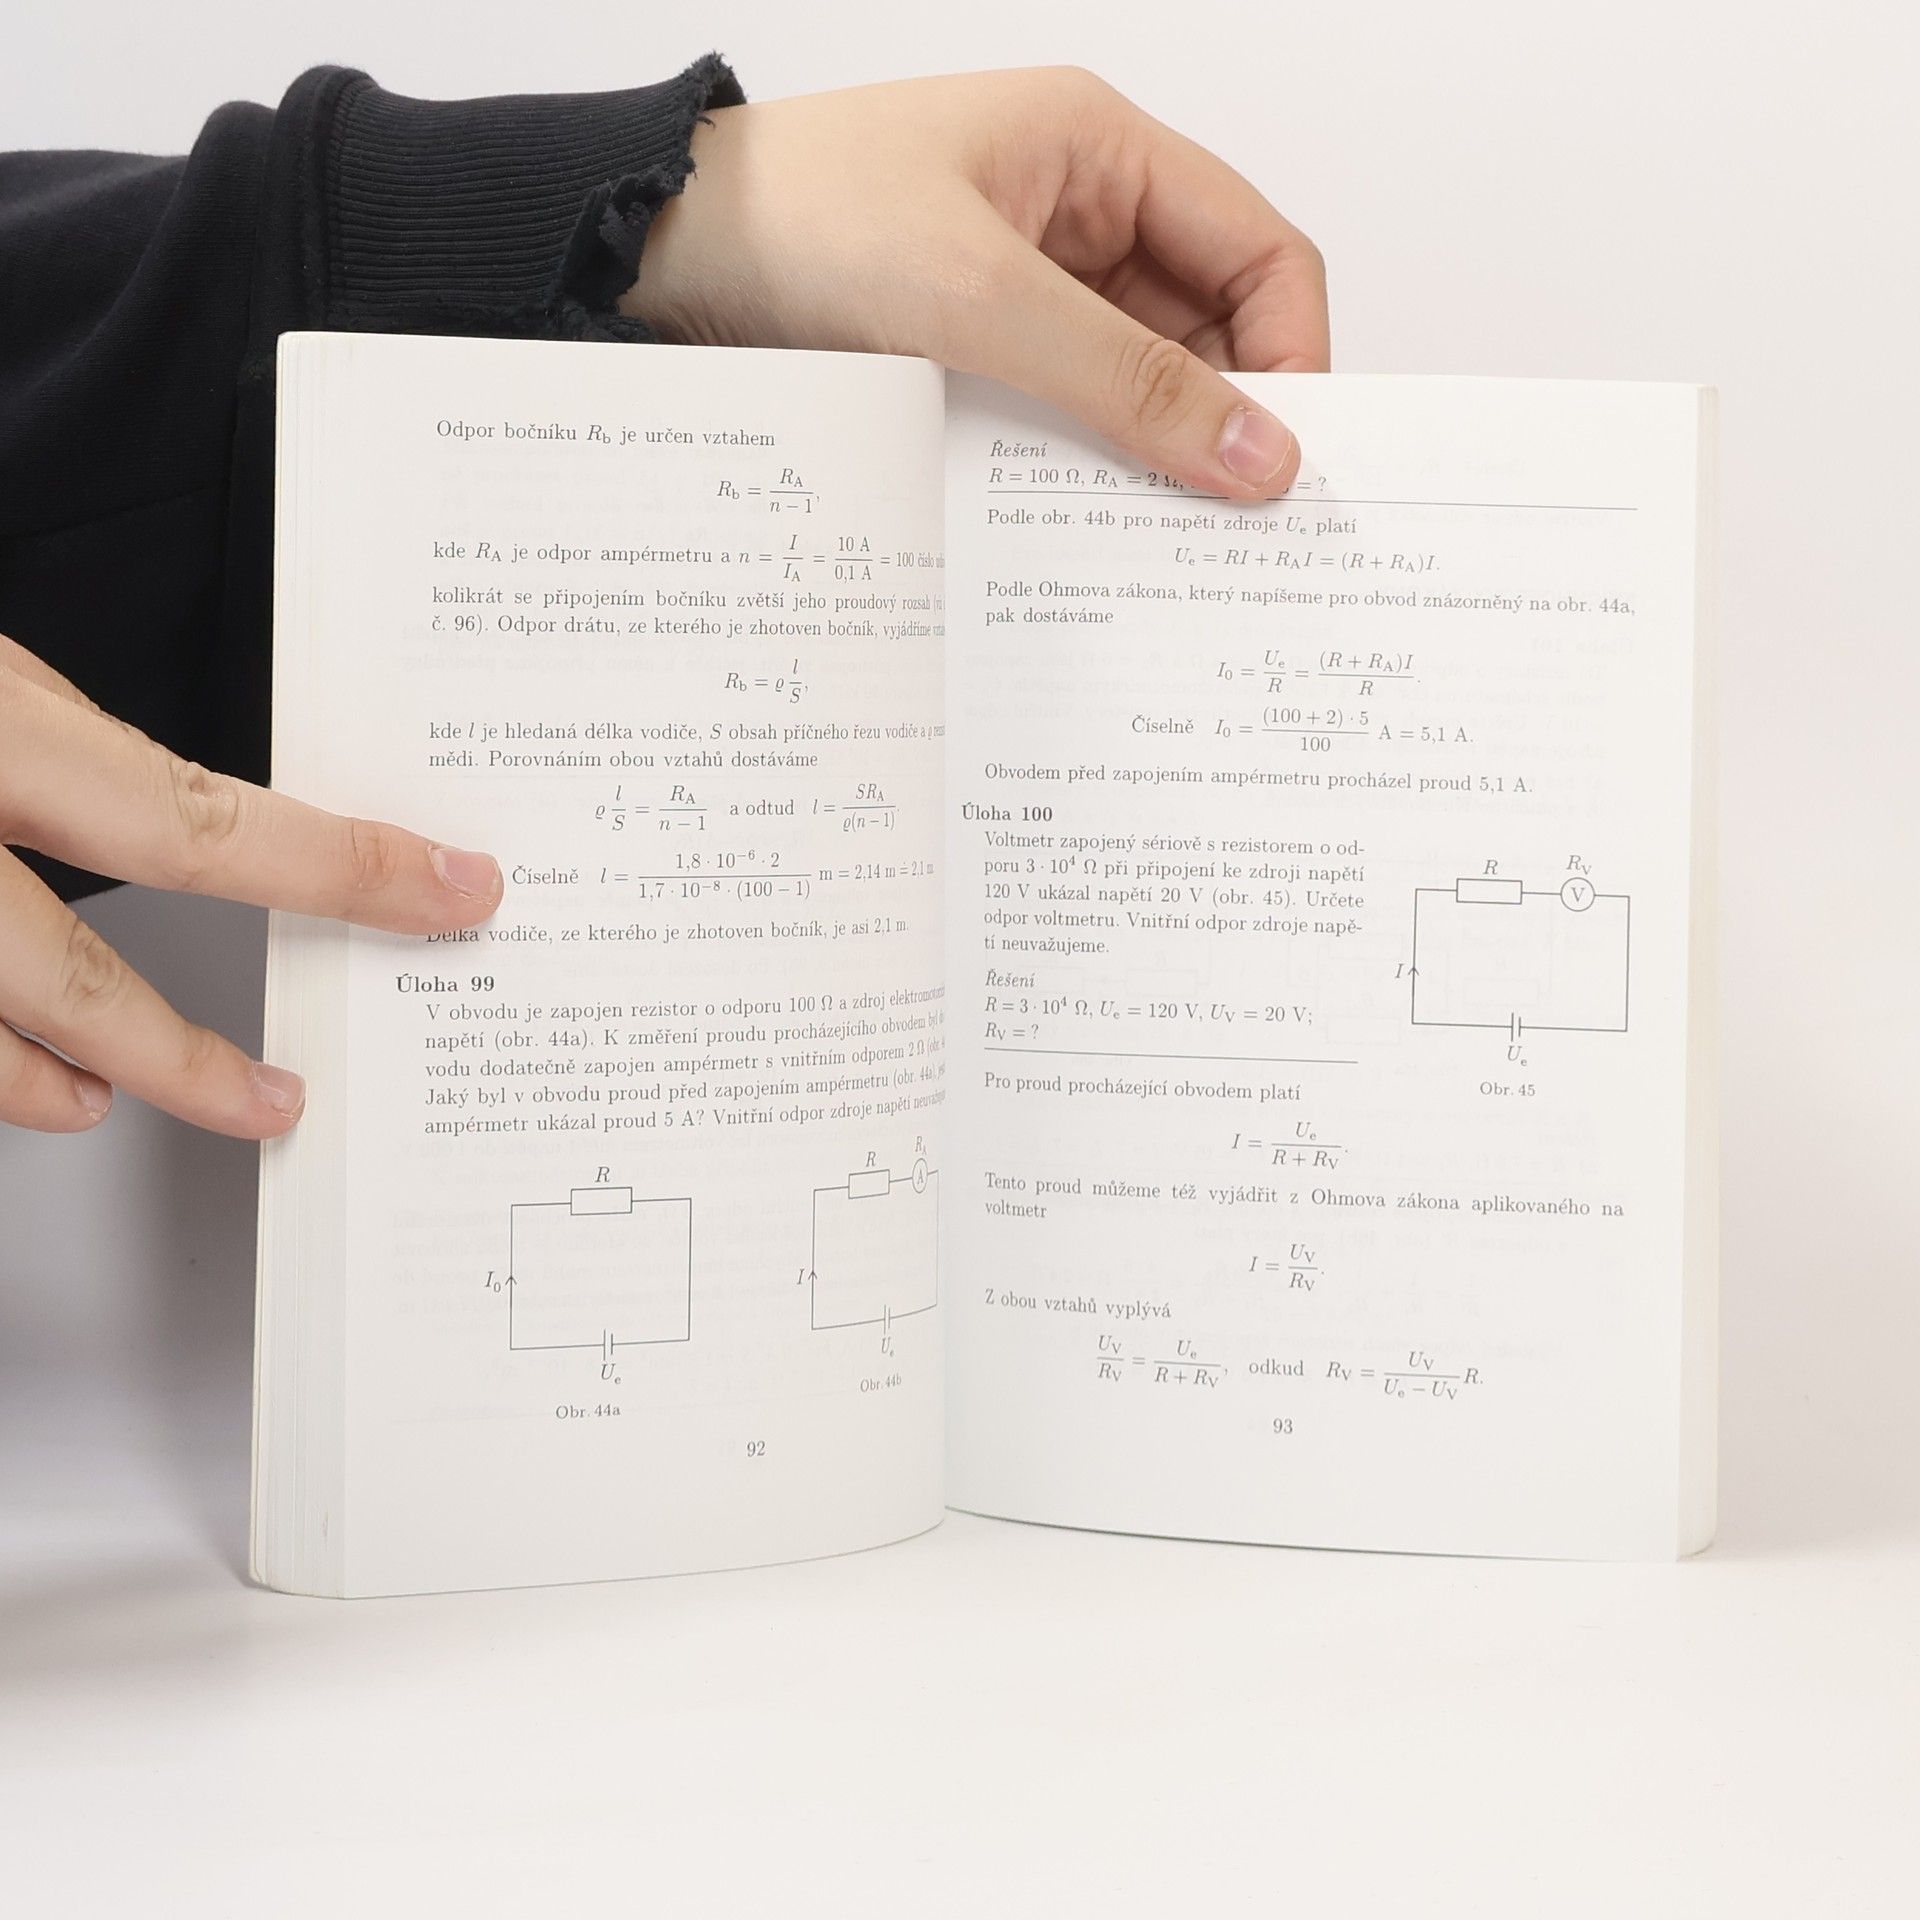 Odpor bočníku R_b je určen vztahem
R_b = R_A / (n − 1),
kde R_A je odpor ampérmetru a n = I / I_A = 10 A / 0,1 A = 100 číslo
kolikrát se připojením bočníku zvětší jeho proudový rozsah
č. 96). Odpor drátu, ze kterého je zhotoven bočník, vyjádříme
R_b = ϱ l / S,
kde l je hledaná délka vodiče, S obsah příčného řezu vodiče a ϱ
mědi. Porovnáním obou vztahů dostáváme
ϱ l / S = R_A / (n − 1) a odtud l = S R_A / (ϱ(n − 1)).
Číselně l = (1,8 · 10⁻⁶ · 2) / (1,7 · 10⁻⁸ · (100 − 1)) m = 2,14 m ≐ 2,1 m
Délka vodiče, ze kterého je zhotoven bočník, je asi 2,1 m.
Úloha 99
V obvodu je zapojen rezistor o odporu 100 Ω a zdroj
napětí (obr. 44a). K změření proudu procházejícího obvodem byl
vodu dodatečně zapojen ampérmetr s vnitřním odporem 2 Ω
Jaký byl v obvodu proud před zapojením ampérmetru (obr. 44a),
ampérmetr ukázal proud 5 A? Vnitřní odpor zdroje napětí
R
I₀
U_e
Obr. 44a
R
R_A
A
I
U_e
Obr. 44b
92
Řešení
R = 100 Ω, R_A = 2 = ?
Podle obr. 44b pro napětí zdroje U_e platí
U_e = RI + R_A I = (R + R_A)I.
Podle Ohmova zákona, který napíšeme pro obvod znázorněný na obr. 44a,
pak dostáváme
I₀ = U_e / R = (R + R_A)I / R.
Číselně I₀ = (100 + 2) · 5 / 100 A = 5,1 A.
Obvodem před zapojením ampérmetru procházel proud 5,1 A.
Úloha 100
Voltmetr zapojený sériově s rezistorem o od-
poru 3 · 10⁴ Ω při připojení ke zdroji napětí
120 V ukázal napětí 20 V (obr. 45). Určete
odpor voltmetru. Vnitřní odpor zdroje napě-
tí neuvažujeme.
Řešení
R = 3 · 10⁴ Ω, U_e = 120 V, U_V = 20 V;
R_V = ?
R
R_V
V
I
U_e
Obr. 45
Pro proud procházející obvodem platí
I = U_e / (R + R_V).
Tento proud můžeme též vyjádřit z Ohmova zákona aplikovaného na
voltmetr
I = U_V / R_V.
Z obou vztahů vyplývá
U_V / R_V = U_e / (R + R_V), odkud R_V = U_V / (U_e − U_V) R.
93